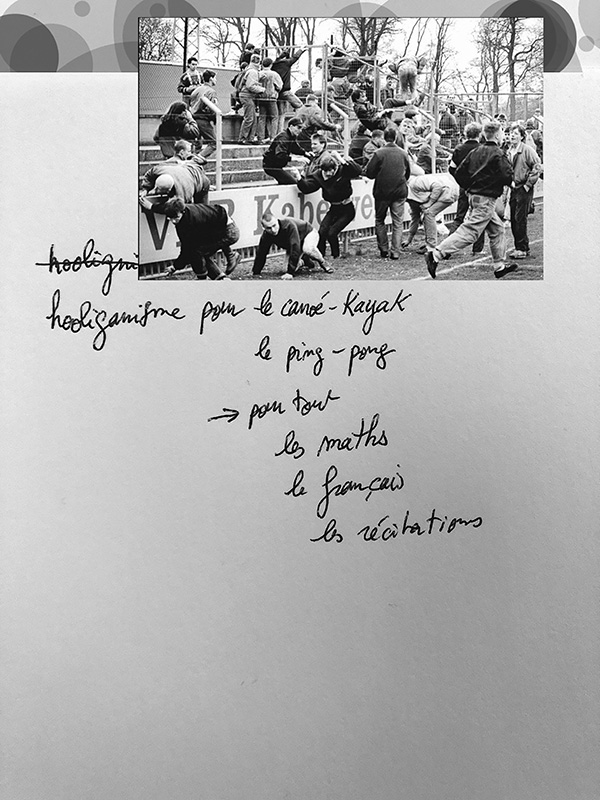 V B Kabelwe
hooligni
hooliganisme pour le canoé-Kayak
le ping-pong
→ pour tout
les maths
le français
les récitations